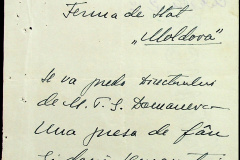 Ferma de Stat
„Moldova"
Se va preda Directorului
de M. T. S. Domanevca
Una presa de fân